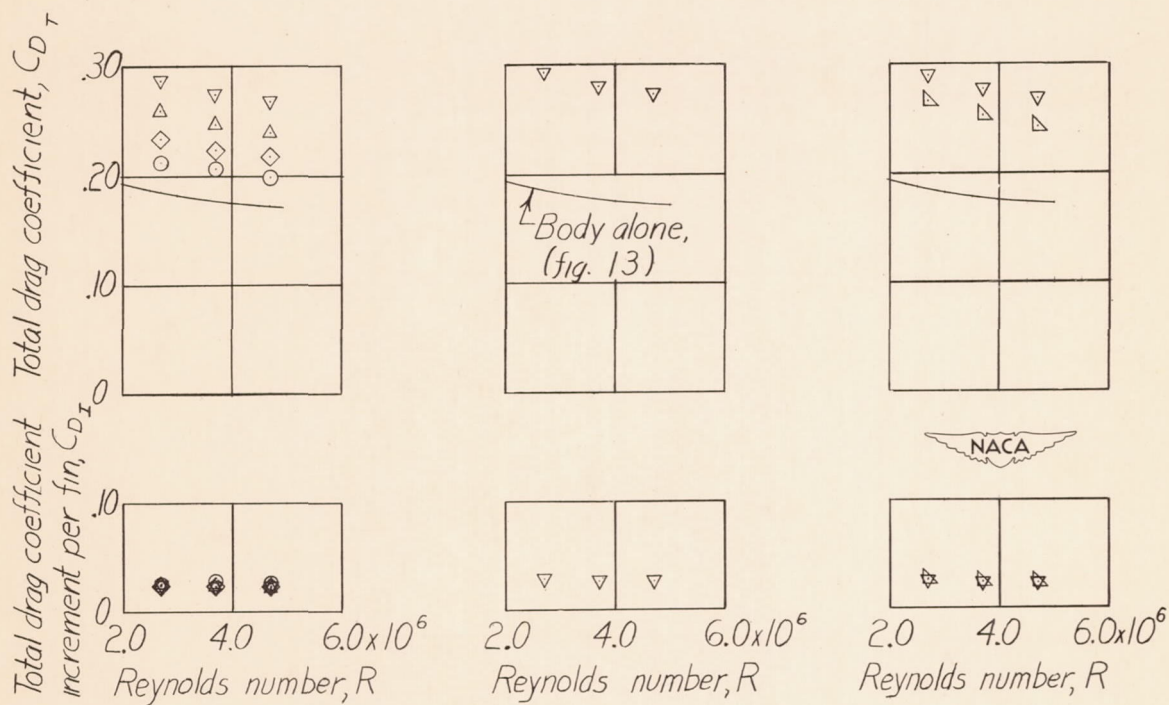 Total drag coefficient, C_D_T
.30
.20
.10
0
Body alone,
(fig. 13)
NACA
Total drag coefficient
increment per fin, C_D_I
.10
0
2.0 4.0 6.0x10⁶
2.0 4.0 6.0x10⁶
2.0 4.0 6.0x10⁶
Reynolds number, R
Reynolds number, R
Reynolds number, R